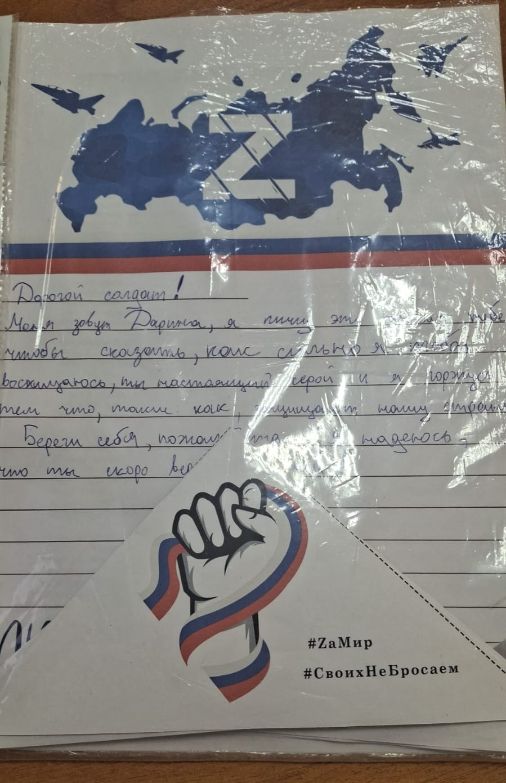 Z
Дорогой солдат!
Меня зовут Дарина, я пишу это тебе
чтобы сказать, как сильно я тобой
восхищаюсь, ты настоящий герой и я горжусь
тем что, такие как, защищают нашу
Береги себя, надеюсь
что ты скоро
#ZаМир
#СвоихНеБросаем